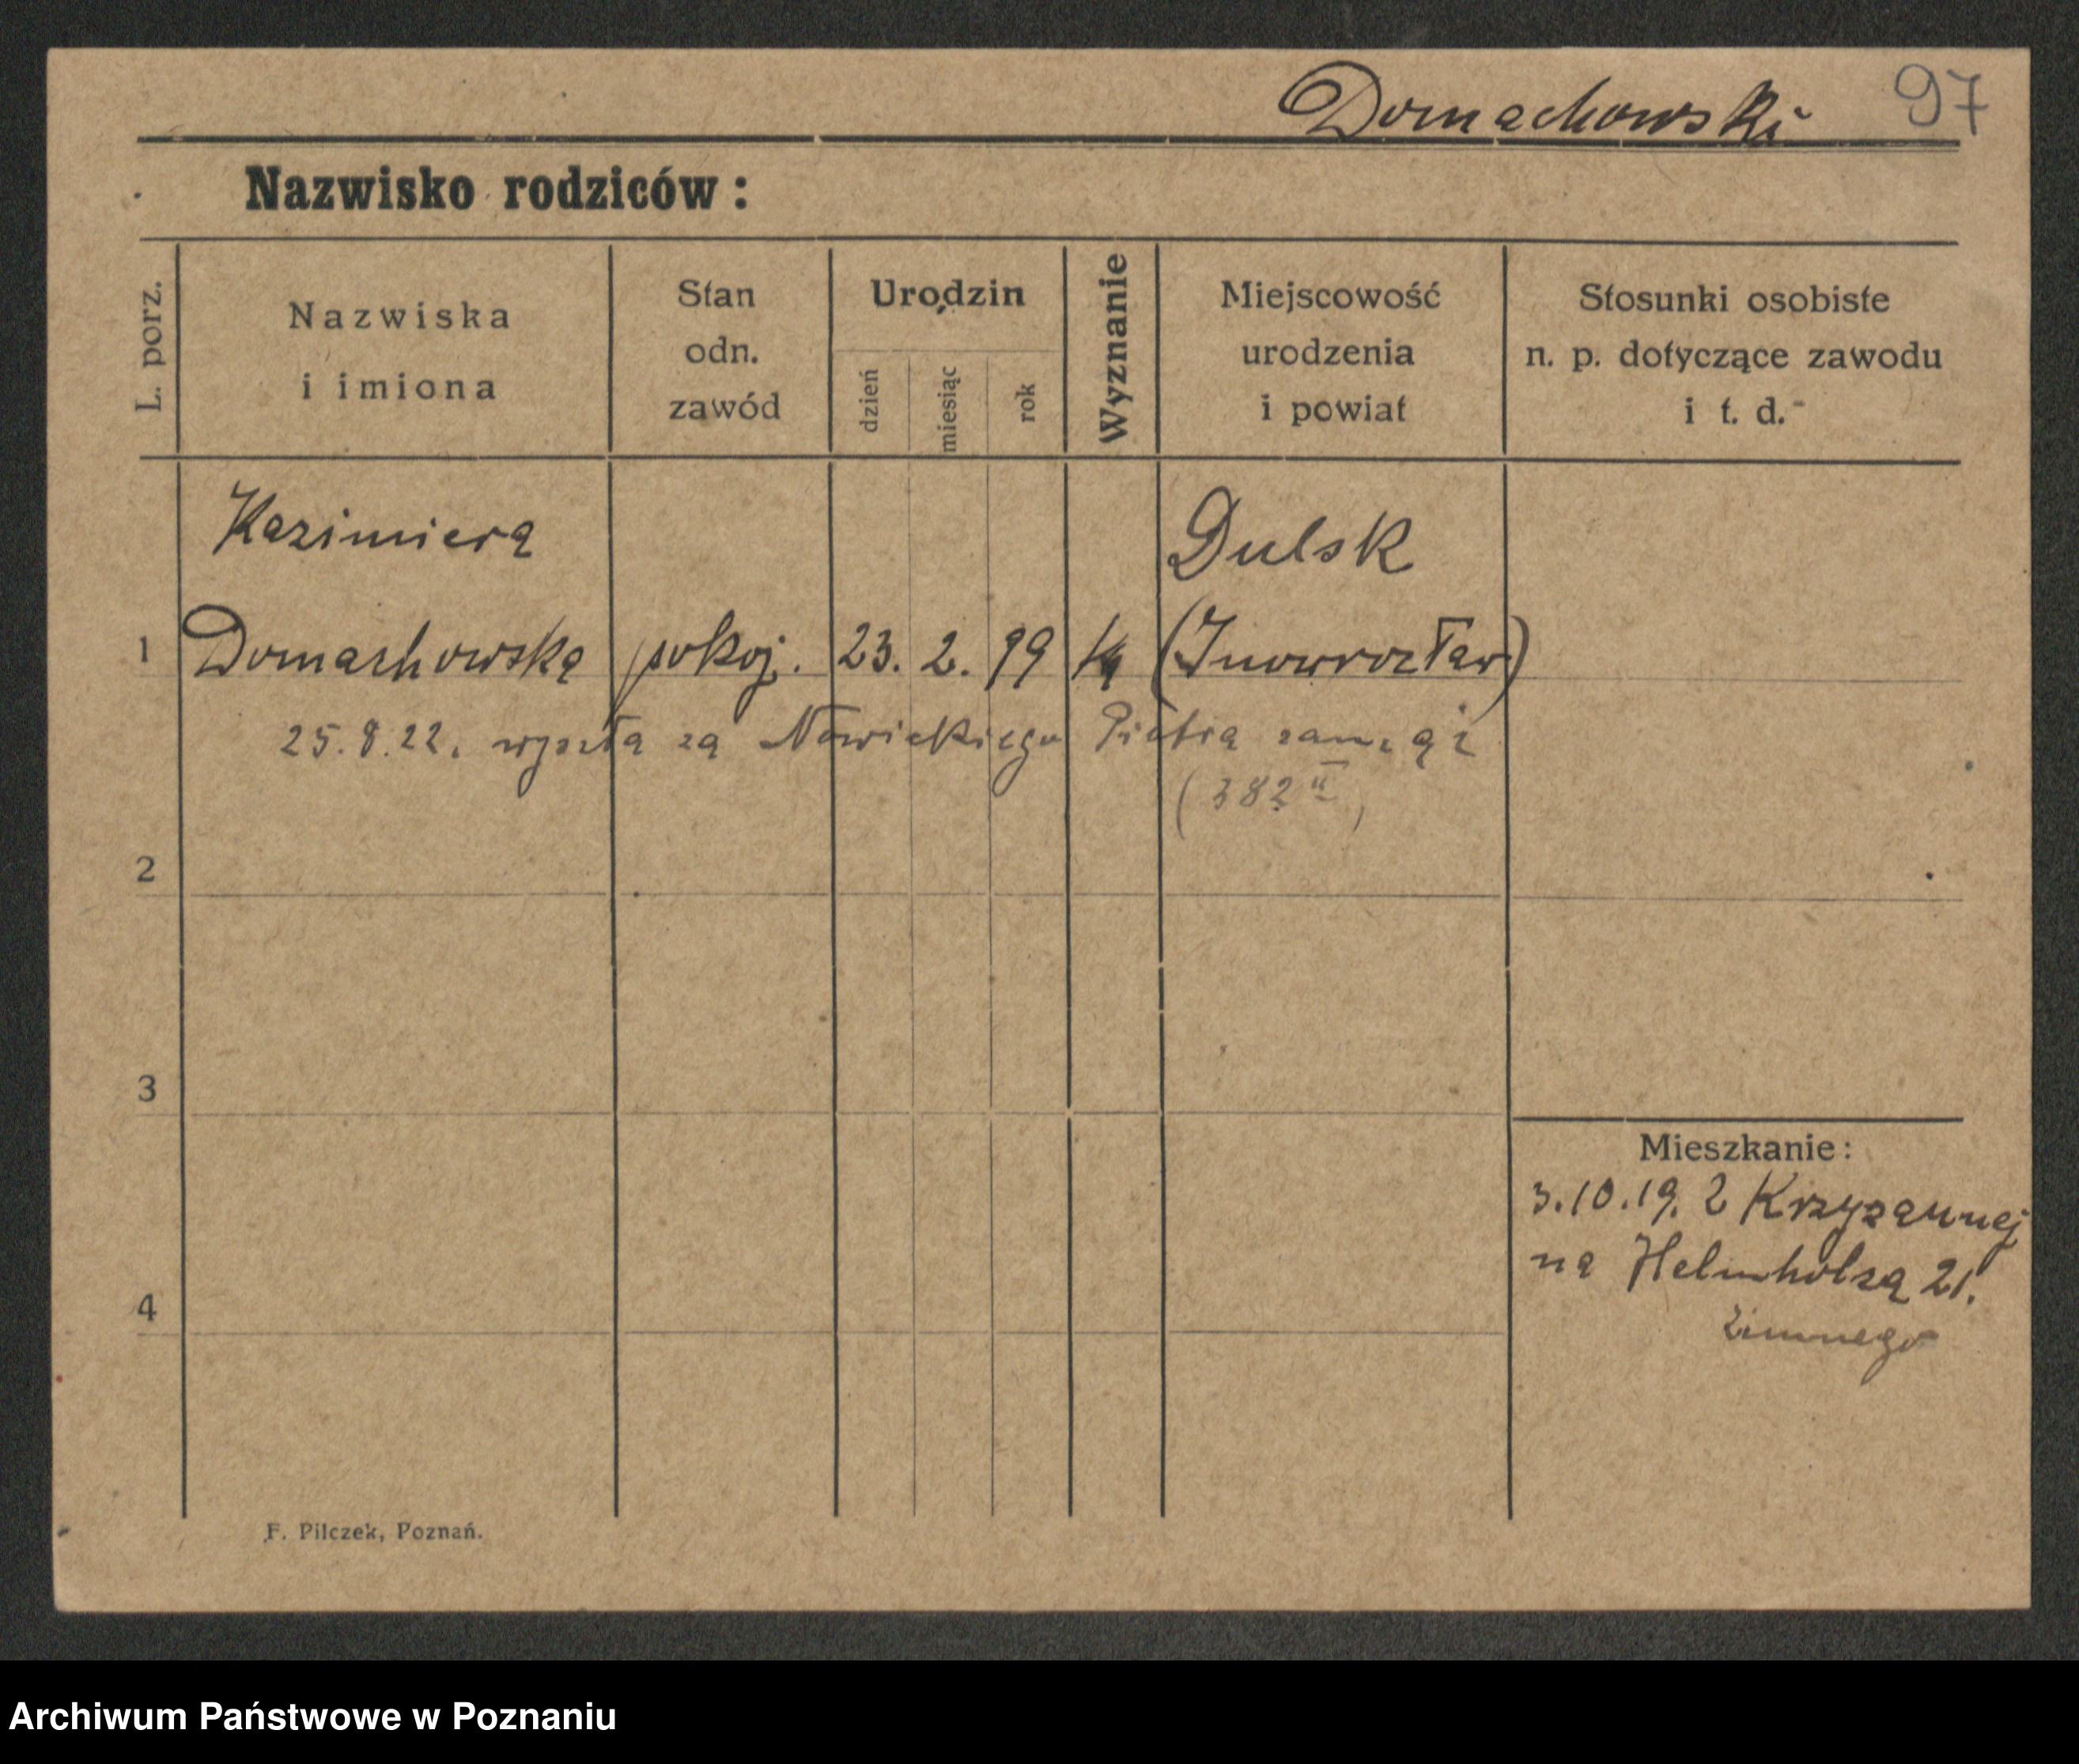 Domachowski 97
Nazwisko rodziców:
L. porz.
Nazwiska
i imiona
Stan
odn.
zawód
Urodzin
dzień
miesiąc
rok
Wyznanie
Miejscowość
urodzenia
i powiat
Stosunki osobiste
n. p. dotyczące zawodu
i t. d.
Kazimiera
Dulsk
1 Domachowska pokoj. 23. 2. 99 (Inowrocław)
25.8.22. wyszła za Nowickiego Piotra zamąż
(382 II)
2
3
Mieszkanie:
3.10.19. z Krzyżannej
na Helmholza 21.
4
Zimnego
F. Pilczek, Poznań.
Archiwum Państwowe w Poznaniu